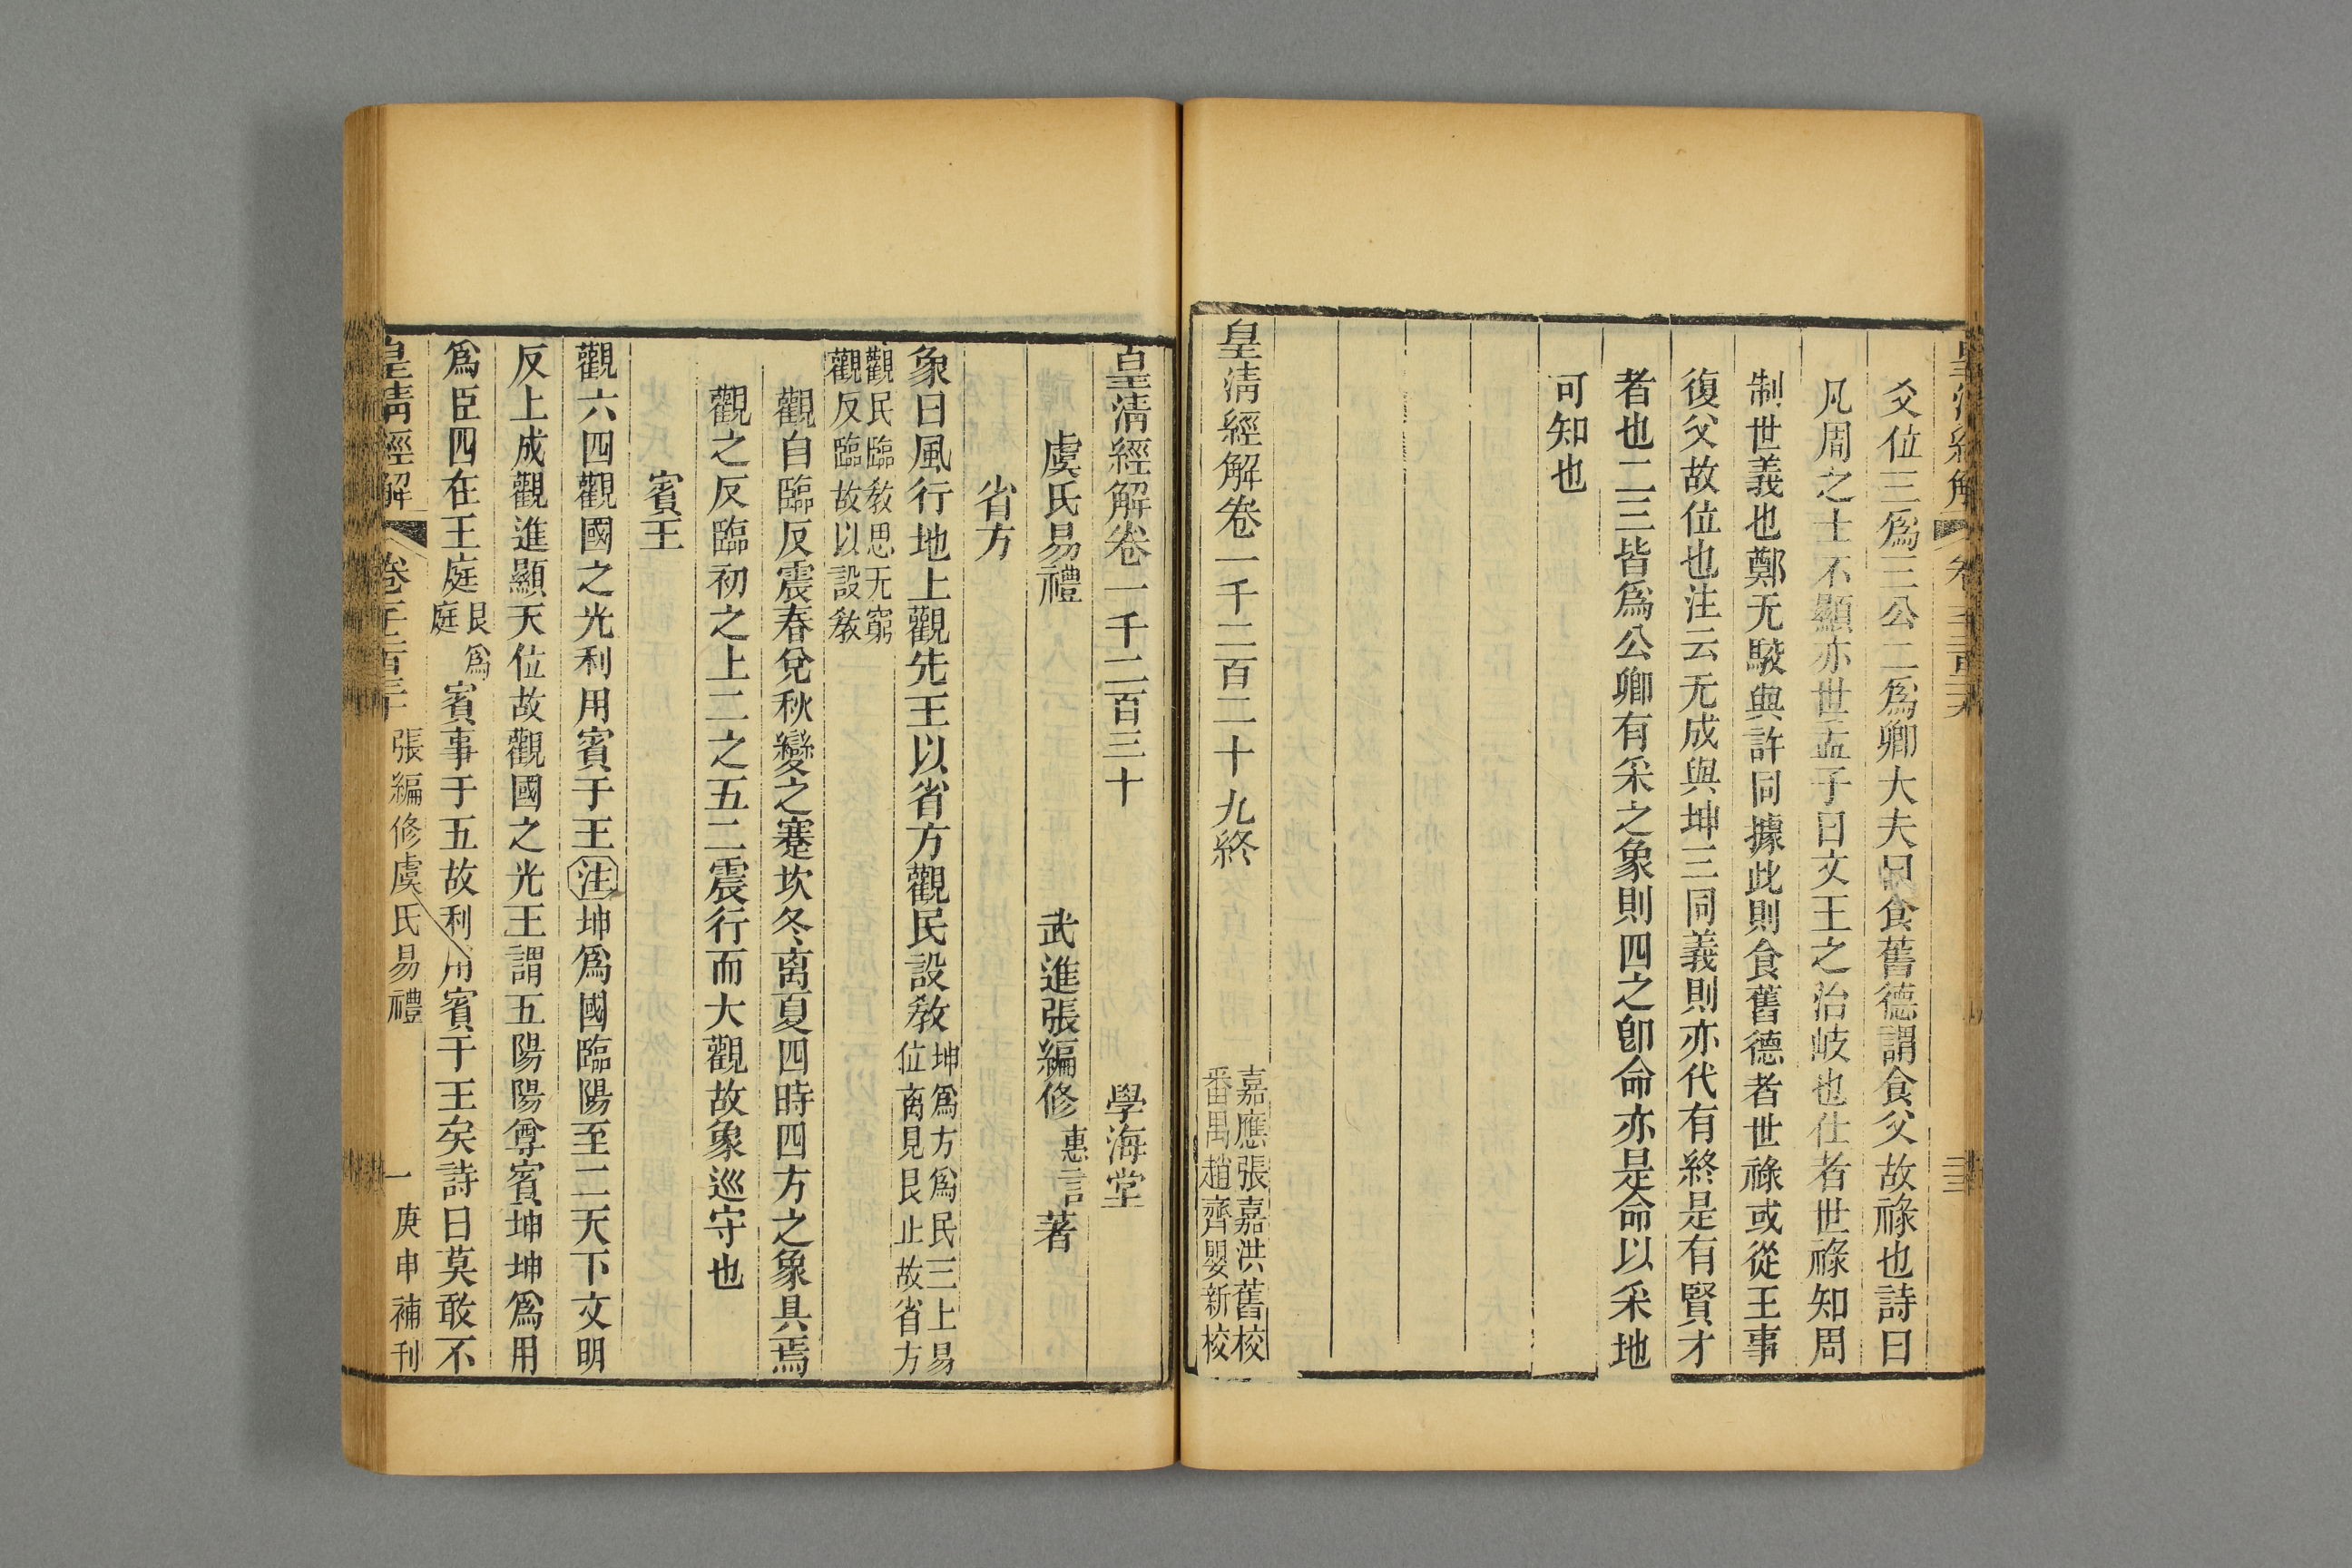 爻位三爲三公二爲卿大夫曰食舊德謂食父故祿也詩曰
凡周之士不顯亦世孟子曰文王之治岐也仕者世祿知周
制世義也鄭无駮與許同據此則食舊德者世祿或從王事
復父故位也注云无成與坤三同義則亦代有終是有賢才
者也二三皆爲公卿有采之象則四之卽命亦是命以采地
可知也
皇淸經解卷一千二百二十九終
嘉應張嘉洪舊校
番禺趙齊嬰新校
皇淸經解卷一千二百三十
學海堂
虞氏易禮
武進張編修惠言著
省方
象曰風行地上觀先王以省方觀民設敎
坤爲方爲民三上易
位离見艮止故省方
觀民臨敎思无窮
觀反臨故以設敎
觀自臨反震春兌秋變之蹇坎冬离夏四時四方之象具焉
觀之反臨初之上二之五二震行而大觀故象巡守也
賓王
觀六四觀國之光利用賓于王注坤爲國臨陽至二天下文明
反上成觀進顯天位故觀國之光王謂五陽陽尊賓坤坤爲用
爲臣四在王庭
艮爲
庭
賓事于五故利用賓于王矣詩曰莫敢不
皇淸經解
張編修虞氏易禮
一
庚申補刊